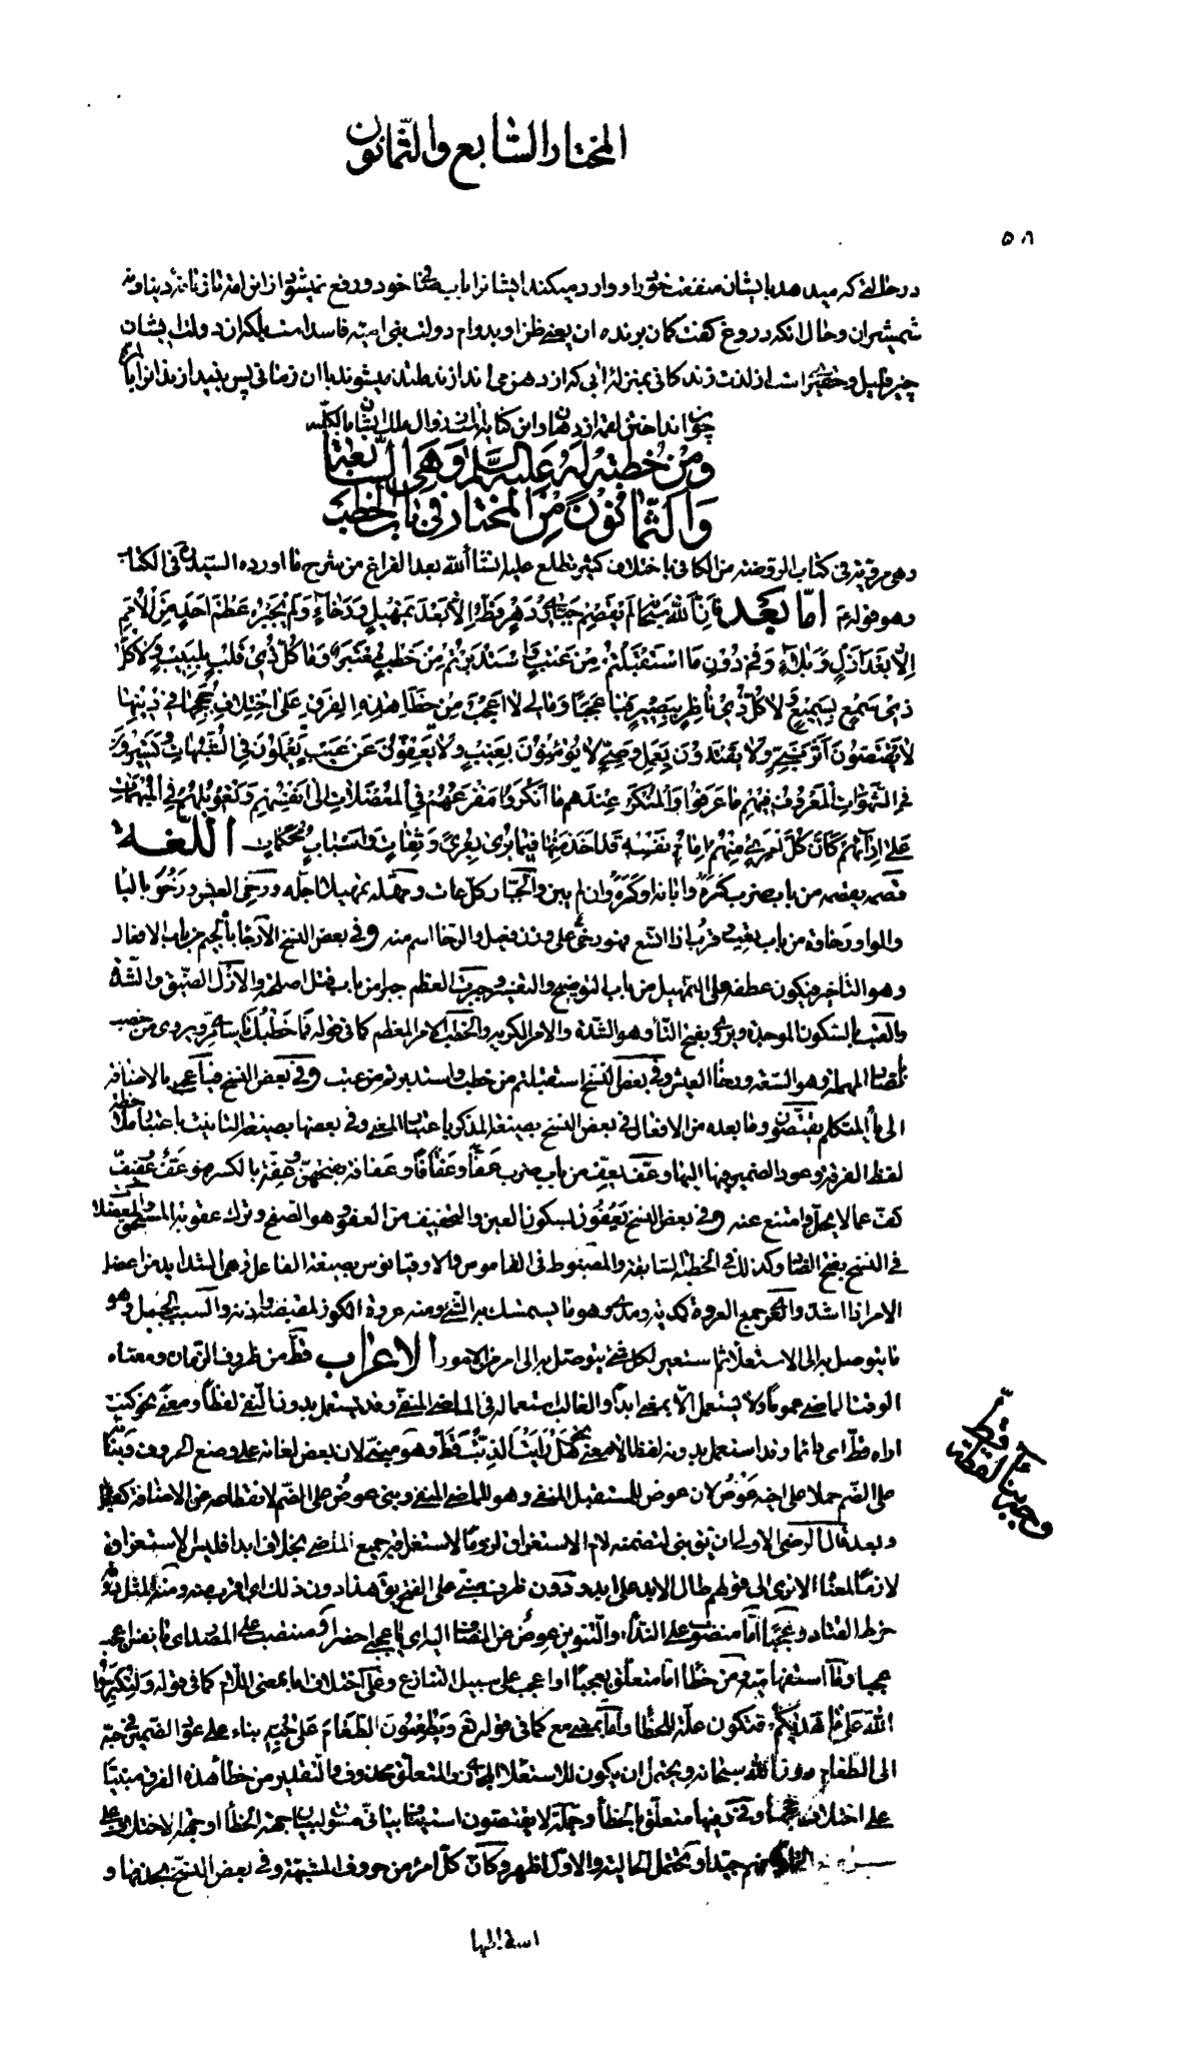 المختار السّابع والثّمانون
٥٨
در حالتی که میدهد بایشان منفعت خود را و وارد میکند ایشانرا بآب صاف خود و رفع نمیشود از این امّت تازیانه دنیا و نه
شمشیر آن و حال آنکه دروغ گفت گمان برنده آن یعنی ظنّ او بدوام دولت بنی امیّه فاسد است بلکه آن دولت ایشان
چیز قلیل و حقیر است از لذت زندگانی بمنزله آبی که از دهن می اندازند طعنه میشوند باآن زمانی پس بیندازند آنرا
چون انداختن لقمه از دهان و این کنایه است از زوال ملک ایشان بالکلیّه
وَمِنْ خُطْبَةٍ لَهُ عَلَيْهِ السَّلامُ وَهِيَ السّابِعَةُ
وَالثَّمانُونَ مِنَ الْمُخْتارِ في بابِ الْخُطَبِ
وهي مرويّة في كتاب الروضة من الكافي باختلاف كثير تطلع عليه انشاء الله بعد الفراغ من شرح ما اورده السّيد في الكتاب
وهو قوله أَمّا بَعْدُ فَإِنَّ اللهَ سُبْحانَهُ لَمْ يَقْصِمْ جَبّاري دَهْرٍ قَطُّ إِلّا بَعْدَ تَمْهيلٍ وَرَخاءٍ وَلَمْ يَجْبُرْ عَظْمَ أَحَدٍ مِنَ الْأُمَمِ
إِلّا بَعْدَ أَزْلٍ وَبَلاءٍ وَفي دُونِ مَا اسْتَقْبَلْتُمْ مِنْ عَتْبٍ وَاسْتَدْبَرْتُمْ مِنْ خَطْبٍ مُعْتَبَرٌ وَما كُلُّ ذي قَلْبٍ بِلَبيبٍ وَلا كُلُّ
ذي سَمْعٍ بِسَميعٍ وَلا كُلُّ ذي ناظِرٍ بِبَصيرٍ فَيا عَجَبًا وَمالي لا أَعْجَبُ مِنْ خَطَإِ هذِهِ الْفِرَقِ عَلى اخْتِلافِ حُجَجِها في دينِها
لا يَقْتَصُّونَ أَثَرَ نَبِيٍّ وَلا يَقْتَدُونَ بِعَمَلِ وَصِيٍّ لا يُؤْمِنُونَ بِغَيْبٍ وَلا يَعِفُّونَ عَنْ عَيْبٍ يَعْمَلُونَ فِي الشُّبُهاتِ وَيَسيرُونَ
فِي الشَّهَواتِ الْمَعْرُوفُ فيهِمْ ما عَرَفُوا وَالْمُنْكَرُ عِنْدَهُمْ ما أَنْكَرُوا مَفْزَعُهُمْ فِي الْمُعْضَلاتِ إِلى أَنْفُسِهِمْ وَتَعْويلُهُمْ فِي الْمُبْهَماتِ
عَلى آرائِهِمْ كَأَنَّ كُلَّ امْرِئٍ مِنْهُمْ إِمامُ نَفْسِهِ قَدْ أَخَذَ مِنْها فيما يَرى بِعُرىً وَثِقاتٍ وَأَسْبابٍ مُحْكَماتٍ اللّغة
قصمه يقصمه من باب ضرب كسره وابانه او كسره وان لم يبن والجبّار كلّ عات ومهّله تمهيلا اجّله ورخى العيش ورخو بالياء
والواو رخاوة من باب تعب وقرب اذا اتّسع فهو رخيّ على وزن فعيل والرخاء اسم منه وفي بعض النسخ الارجاء بالجيم من باب الافعال
وهو التأخير فيكون عطفه على التمهيل من باب التوضيح والتفسير وجبرت العظم جبرا من باب قتل اصلحته والازل الضّيق والشّدة
والعتب بالسكون الموحدة ويروى بفتح التاء وهو الشّدة والامر الكريه والخطب الامر المعظم كما في قوله فما خطبك يا سامريّ ويروى من خصب
بالصاد المهملة وهو السّعة ورخاء العيش وفي بعض النسخ استقبلتم من خطب واستدبرتم من عتب وفي بعض النسخ فيا عجبي بالاضافة
الى ياء المتكلم يقتصّون وما بعده من الافعال في بعض النسخ بصيغة المذكر باعتبار المعنى وفي بعضها بصيغة التأنيث باعتبار ملاحظة
لفظ الفرقة وعود الضمير فيها اليها وعفّ يعفّ من باب ضرب عفّا وعفافا وعفافة بفتحهنّ وعفّة بالكسر فهو عفّ وعفيف
كفّ عما لا يحلّ وامتنع عنه وفي بعض النسخ يعفون بسكون العين والتخفيف من العفو وهو الصّفح وترك عقوبة المستحق والمعضلات
في النسخ بفتح الضاد وكذلك في الخطبة السّابقة والمضبوط في القاموس والاوقيانوس بصيغة الفاعل وهي الشدايد من اعضل
الامر اذا اشتد والعرى جمع العروة كمدية ومدى وهو ما يستمسك به الشّيء ومنه عروة الكوز لمقبضه واذنه والسبب الحبل وهو
ما يتوصل به إلى الاستعلاء ثم استعير لكل شيء يتوصل به إلى امر من الامور الاعراب قطّ من ظروف الزّمان ومعناه
الوقت الماضي عموما ولا يستعمل الّا بمعنى ابدا والغالب استعماله في الماضي المنفي وقد يستعمل بدون النّفي لفظا ومعنى نحو كنت
اراه قطّ اى دائما وقد استعمل بدونه لفظا لا معنى نحو هل رأيت الذئب قطّ وهو مبنيّ لان بعض لغاته على وضع الحروف وبناؤه
على الضّم حملا على اخيه عوض لان عوض للمستقبل المنفي وهو للماضي المنفي وبني عوض على الضّم لانقطاعه عن الاضافة كقبل
وبعد قال الرضي الاولى ان يق بني لتضمنه لام الاستغراق لزوما لاستغراقه جميع الماضي بخلاف ابدا فليس الاستغراق
لازما لمعناه الا ترى الى قولهم طال الابد على لبد ودون ظرف مبنيّ على الفتح يق هذا دون ذلك اى اقرب منه ومنه المثل دونه
خرط القتاد وعجبا امّا منصوب على النداء والتنوين عوض عن المضاف اليه اى يا عجبي احضر او منتصب على المصدر اى يا نفس اعجب
عجبا وما استفهاميّة ومن خطأ امّا متعلّق بعجبا او اعجب على سبيل التنازع وعلى اختلاف امّا بمعنى اللّام كما في قوله ولتكبّروا
الله على ما هديكم فتكون علّة للخطأ وامّا بمعنى مع كما في قوله تعالى ويطعمون الطّعام على حبّه بناء على عود الضّمير في حبّه
الى الطّعام دون الله سبحانه ويحتمل ان يكون للاستعلاء المجازي والمتعلّق محذوف والتقدير من خطأ هذه الفرق مبتنيا
على اختلاف حججها وفي دينها متعلّق بالخطأ وجملة لا يقتصون استيناف بيانيّ مسوق لبيان جهة الخطأ او جهة الاختلاف على
جيّد او يحتمل الحالية والاوّل اظهر وكأنّ كلّ امرء من حروف المشبّهة وفي بعض النسخ بحذفها و
قطّ
لفظة